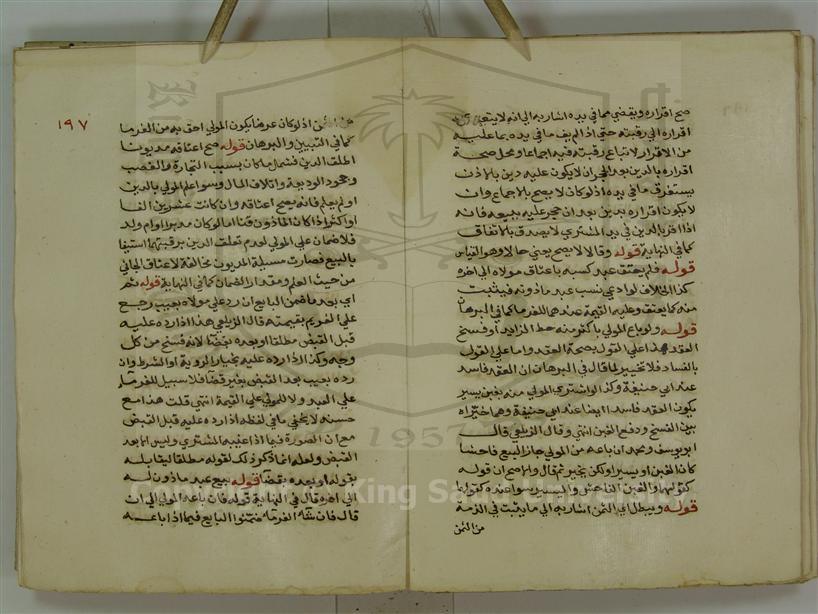 صح اقراره ويقضي مما في يده اشار به الي انه لا يتعدي
اقراره الي رقبته حتي اذا لم يف ما في يده بما عليه
من الاقرار لا تباع رقبته فيه اجماعا ومحل صحة
اقراره بالدين بعد الحجر ان لا يكون عليه دين بالاذن
يستغرق ما في يده اذ لو كان لا يصح بالاجماع وان
لا يكون اقراره بدين بعد ان حجر عليه ببيعه فانه
اذا اقر بالدين في يد المشتري لا يصدق بالاتفاق
كما في النهاية قوله وقالا لا يصح يعني حالا وهو القياس
قوله فلم يعتق عبد كسبه باعتاق مولاه الي اخره
كذا الخلاف لو ادعي نسب عبد ماذونه فيثبت
منه كما يعتق وعليه القيمة عندهما للغرما كما في البرهان
قوله ولو باع المولي باكثر منه حط الزايد او فسخ
العقد هذا علي القول بصحة العقد واما علي القول
بالفساد فلا تخيير لما قال في البرهان ان العقد فاسد
عند ابي حنيفة وكذا لو اشتري المولي منه بغبن يسير
يكون العقد فاسدا ايضا عند ابي حنيفة وهما خيراه
بين الفسخ ودفع الغبن انتهي وقال الزيلعي قال
ابو يوسف ومحمد ان باعه من المولي جاز البيع فاحشا
كان الغبن او يسيرا ولكن يخير ثم قال والاصح ان قوله
كقولهما والغبن الفاحش واليسير سوا عنده كقولهما
قوله ويبطل اي الثمن اشار به الي ما يثبت في الذمة
من الثمن
١٩٧
من الثمن اذ لو كان عرضا يكون المولي احق به من الغرما
كما في التبيين والبرهان قوله صح اعتاقه مديونا
اطلق الدين فشمل ما كان بسبب التجارة والغصب
وجحود الوديعة واتلاف المال وسوا علم المولي بالدين
او لم يعلم فانه يصح اعتاقه وان كانت عشرين الفا
او اكثر اذا كان الماذون قنا اما لو كان مدبرا او ام ولد
فلا ضمان علي المولي لعدم تعلق الدين برقبتهما استيفا
بالبيع فصارت مسيلة المديون مخالفة لاعتاق الجاني
من حيث العلم ومقدار الضمان كما في النهاية قوله ثم
اي بعد ما ضمن البايع ان رد علي مولاه بعيب رجع
علي الغريم بقيمته قال الزيلعي هذا اذا رده عليه
قبل القبض مطلقا او بعده بقضا لانه فسخ من كل
وجه وكذا اذا رده عليه بخيار الروية او الشرط وان
رده بعيب بعد القبض بغير قضا فلا سبيل للغرما
علي العبد ولا للمولي علي القيمة انتهي قلت هذا مع
حسنه لا يخفي ما في لفظه اذا رده عليه قبل القبض
مع ان الصورة فيما اذا غيبه المشتري وليس الا بعد
القبض ولعله انما ذكر ذلك لقوله مطلقا ليقابله
بقوله او بعده بقضا قوله بيع عبد ماذون له
الي اخره قال في النهاية قوله فان باعه المولي الي ان
قال فان شا الغرما ضمنوا البايع فيما اذا باعه
1957
King Saud University